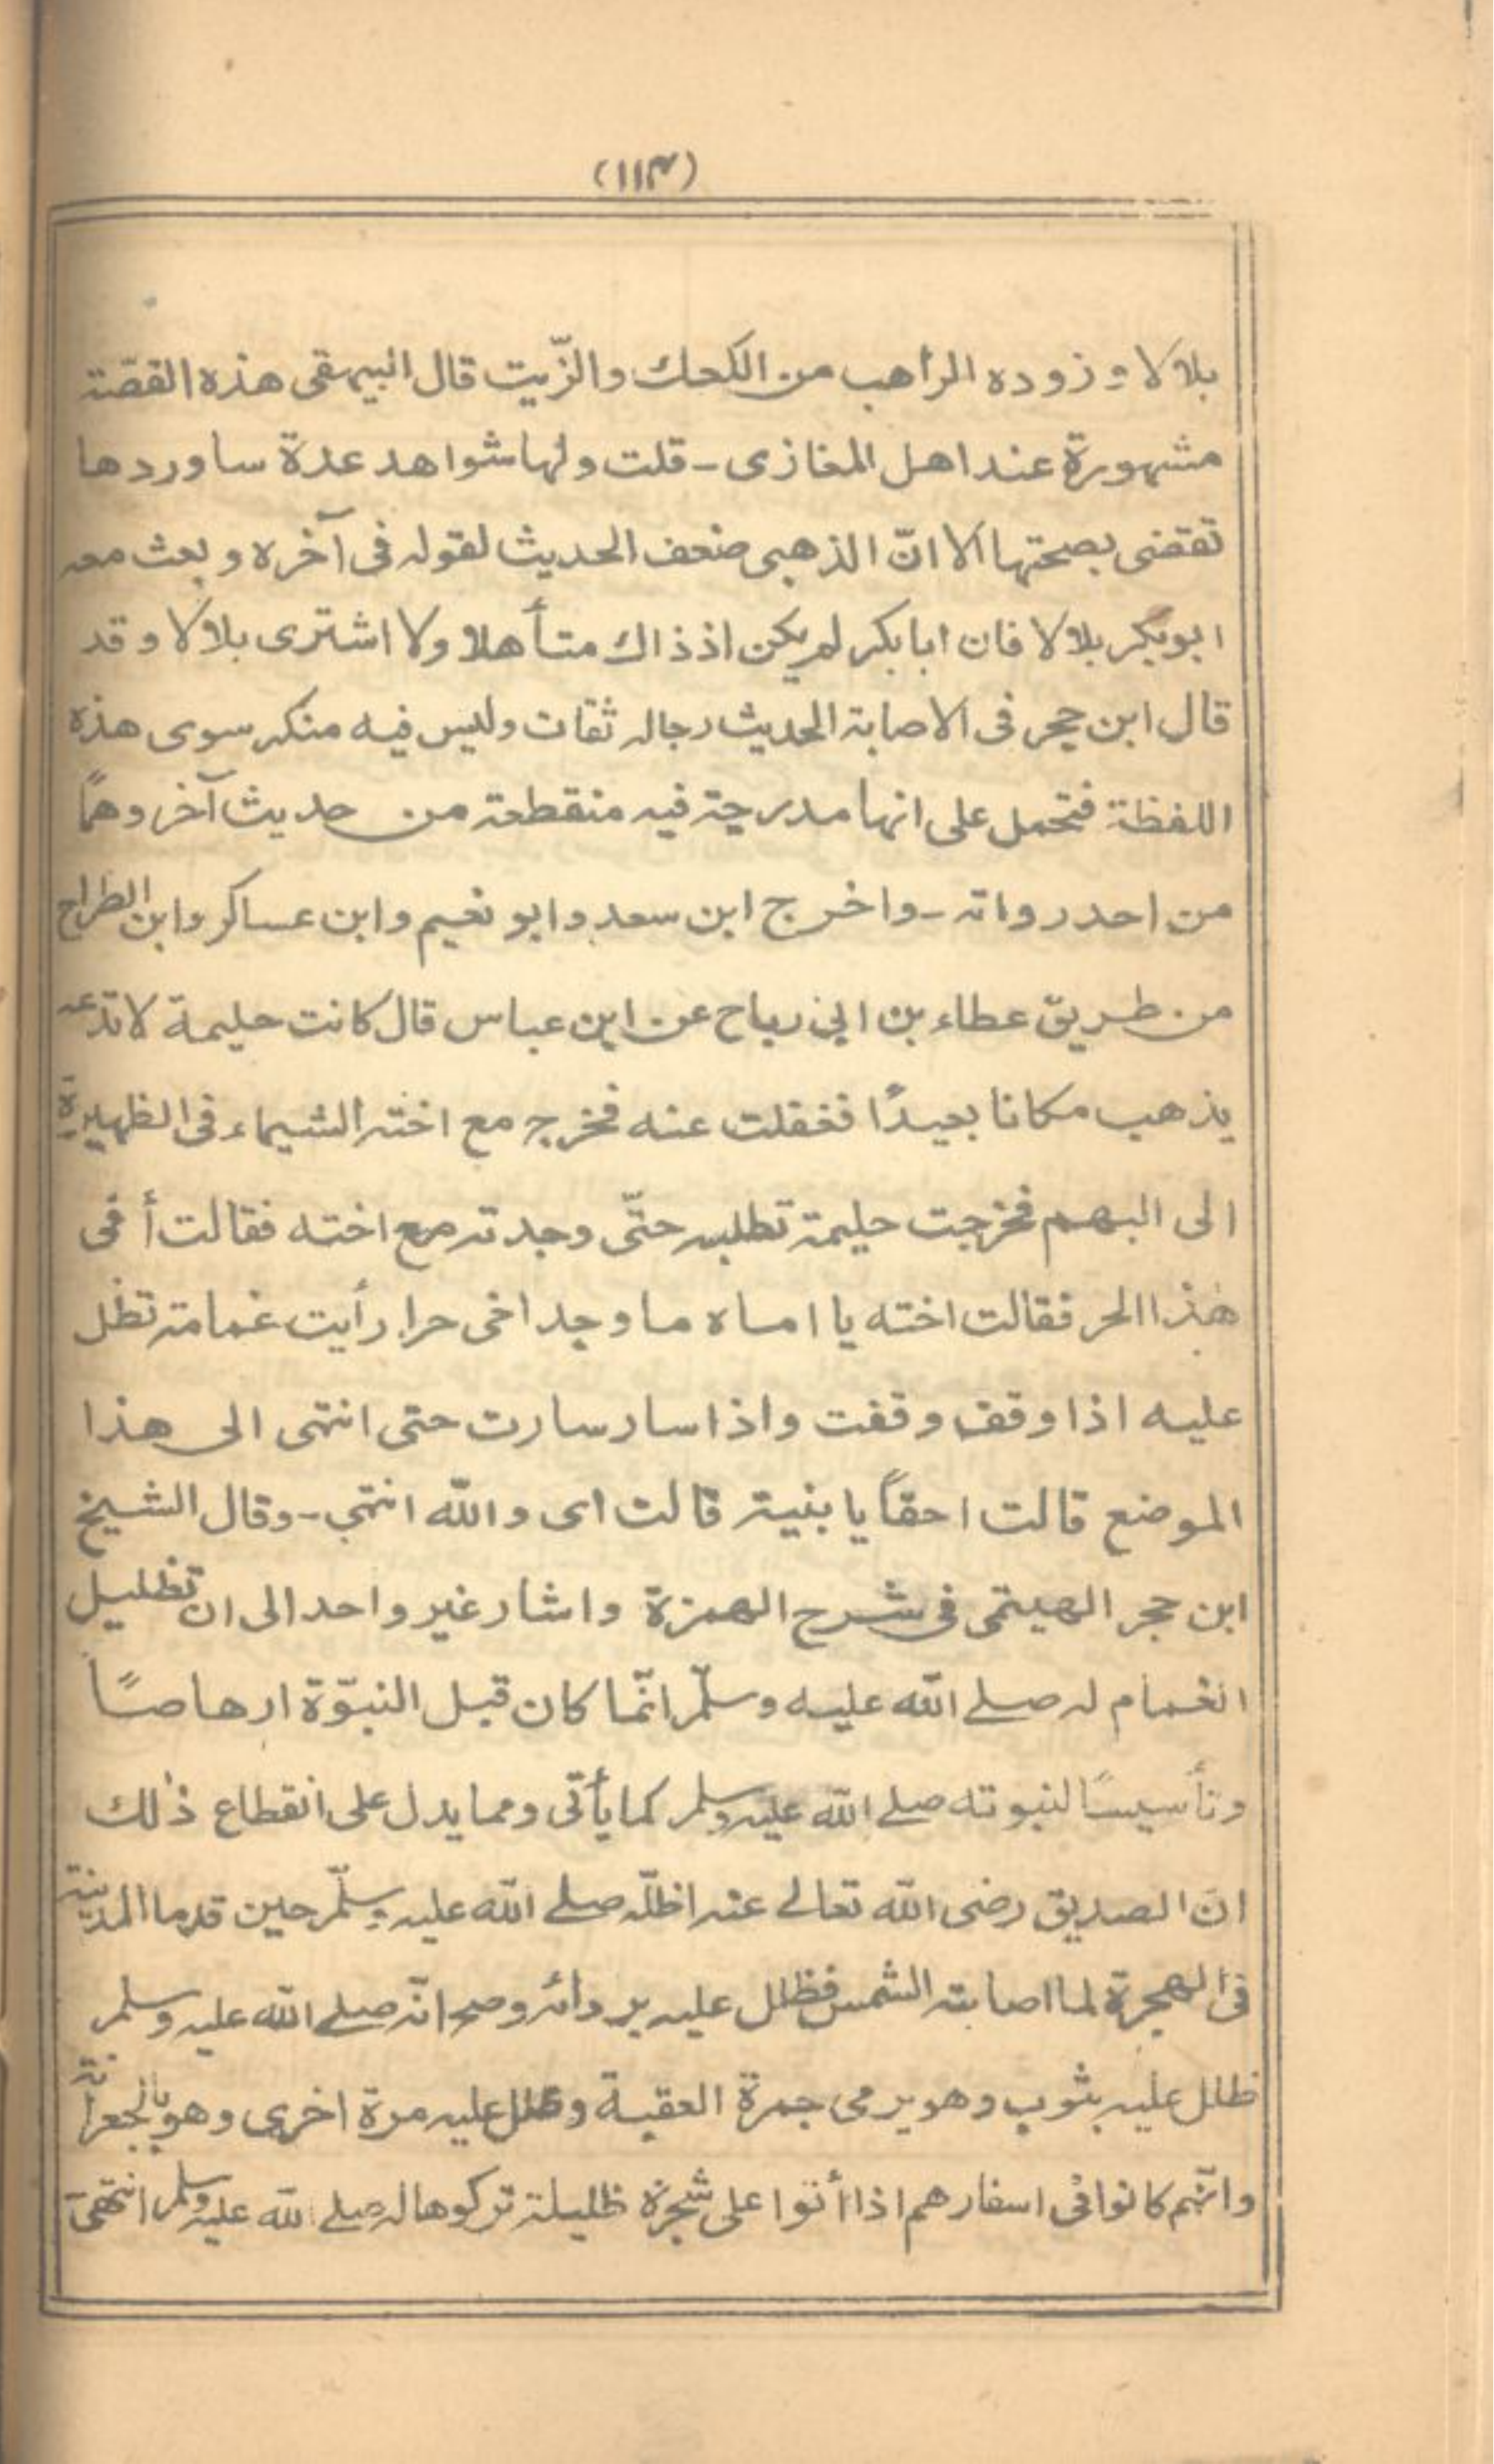 (١١٣)
بلالا وزوده الراهب من الكعك والزّيت قال البيهقى هذه القصّة
مشهورة عند اهل المغازى - قلت ولها شواهد عدة ساوردها
تقضى بصحتها الا انّ الذهبى ضعف الحديث لقوله فى آخره وبعث معه
ابوبكر بلالا فان ابابكر لم يكن اذ ذاك متأهلا ولا اشترى بلالا وقد
قال ابن حجر فى الاصابة الحديث رجاله ثقات وليس فيه منكر سوى هذه
اللفظة فتحمل على انها مدرجة فيه منقطعة من حديث آخر وهماً
من احد رواته - واخرج ابن سعد وابو نعيم وابن عساكر وابن الطراح
من طريق عطاء بن ابي رباح عن ابن عباس قال كانت حليمة لا تدعه
يذهب مكانا بعيدًا فغفلت عنه فخرج مع اخته الشيماء فى الظهيرة
الى البهم فخرجت حليمة تطلبه حتّى وجدته مع اخته فقالت أ فى
هذا الحر فقالت اخته يا اماه ما وجد اخى حرا رأيت غمامة تظل
عليه اذا وقف وقفت واذا سار سارت حتى انتهى الى هذا
الموضع قالت احقاً يا بنية قالت اى والله انتهى - وقال الشيخ
ابن حجر الهيتمى فى شرح الهمزة واشار غير واحد الى ان تظليل
الغمام له صلے الله عليه وسلّم انّما كان قبل النبوّة ارهاصًا
وتأسيسًا لنبوته صلے الله عليه وسلم كما يأتى ومما يدل على انقطاع ذٰلك
انّ الصديق رضى الله تعالے عنه اظلّه صلے الله عليه وسلّم حين قدما المدينة
فى الهجرة لما اصابته الشمس فظلل عليه بردائه وصح انّه صلے الله عليه وسلم
ظلل عليه بثوب وهو يرمى جمرة العقبة وظلل عليه مرة اخرى وهو بالجعرانة
وانّهم كانوا فى اسفارهم اذا أتوا على شجرة ظليلة تركوها له صلے الله عليه وسلم انتهى